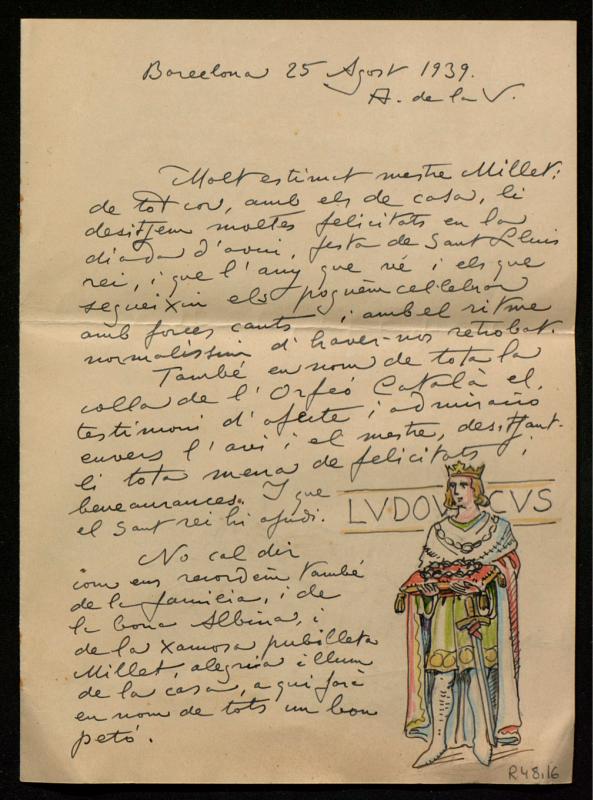 Barcelona 25 Agost 1939.
A. de la V.
Molt estimat mestre Millet:
de tot cor, amb els de casa, li
desitjem moltes felicitats en la
diada d'avui, festa de Sant Lluis
rei, i que l'any que vé i els que
segueixin els poguèm cel·lebrar
amb forces cants i amb el ritme
normalíssim d'haver-nos retrobat.
També en nom de tota la
colla de l'Orfeó Català el
testimoni d'afecte i admiració
envers l'avi i el mestre, desitjant-
li tota mena de felicitats i
benaurances. I que
el Sant rei hi ajudi.
LVDOV CVS
No cal dir
com ens recordèm també
de la familia, i de
la bona Albina, i
de la xamosa pubilleta
Millet, alegria i llum
de la casa, a qui farà
en nom de tots un bon
petó.
R48.16